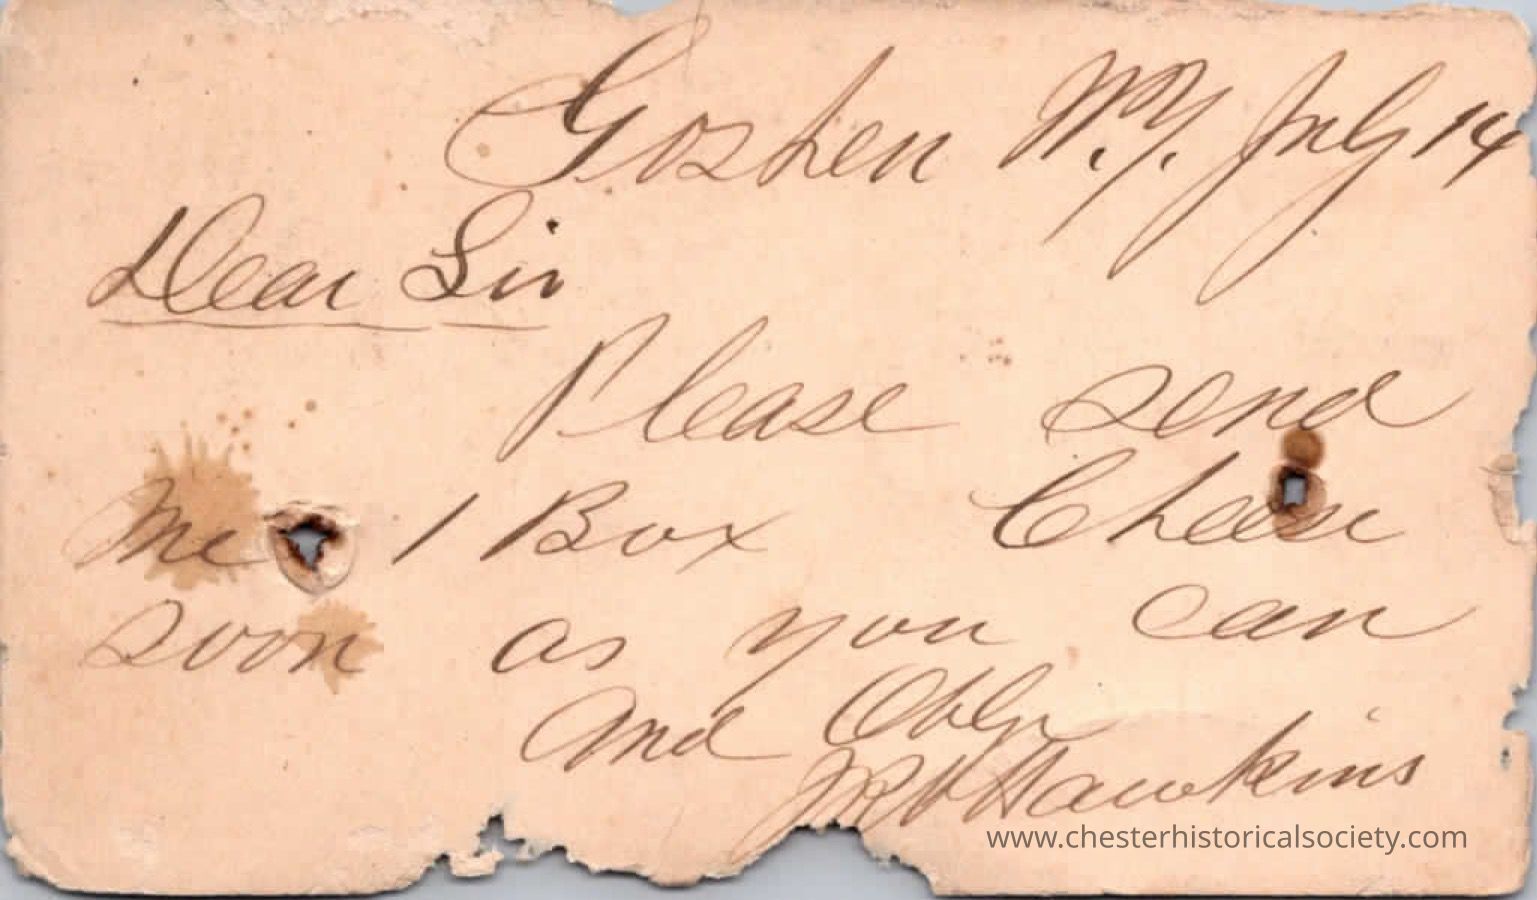 Goshen N.Y. July 14
Dear Sir
Please send
me 1 Box Cheese
soon as you can
and Oblg
Hawkins
www.chesterhistoricalsociety.com